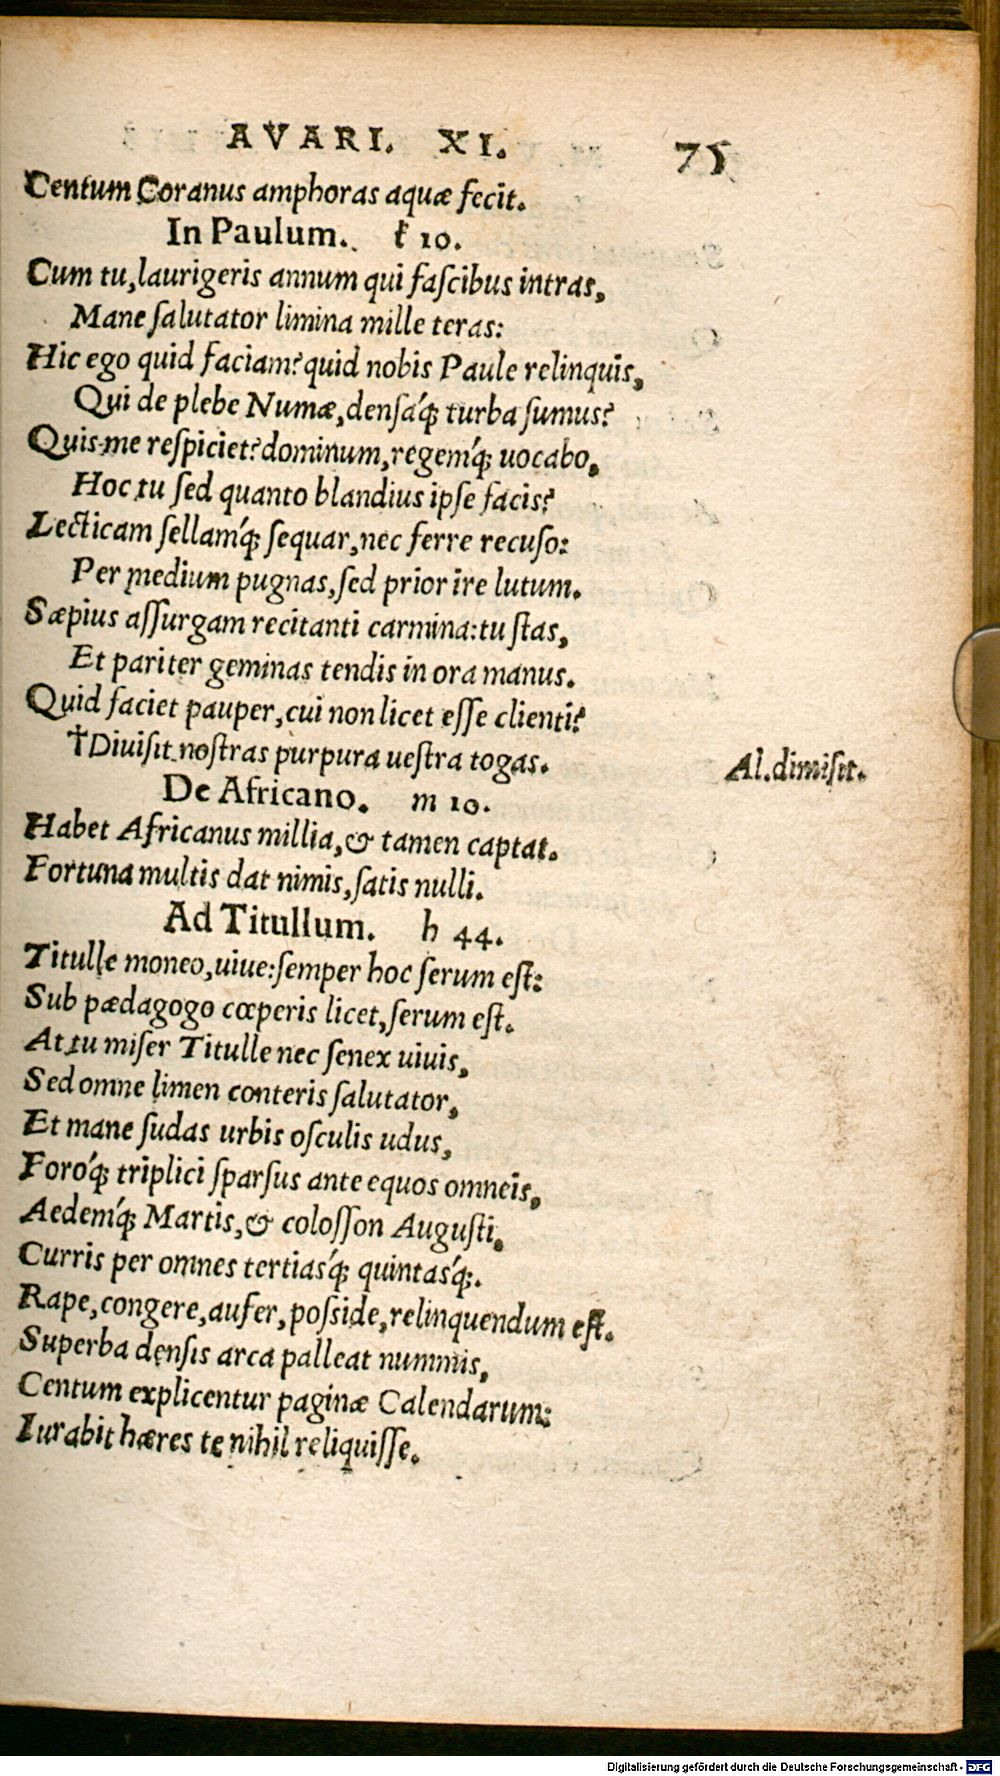 AVARI. XI. 75
Centum Coranus amphoras aquæ fecit.
In Paulum. ł 10.
Cum tu, laurigeris annum qui faſcibus intras,
Mane ſalutator limina mille teras:
Hic ego quid faciam? quid nobis Paule relinquis,
Qui de plebe Numæ, denſáq; turba ſumus?
Quis me reſpiciet? dominum, regemq́; uocabo,
Hoc tu ſed quanto blandius ipſe facis?
Lecticam ſellamq́; ſequar, nec ferre recuſo:
Per medium pugnas, ſed prior ire lutum.
Sæpius aſſurgam recitanti carmina: tu ſtas,
Et pariter geminas tendis in ora manus.
Quid faciet pauper, cui non licet eſſe clienti?
†Diuiſit noſtras purpura ueſtra togas. Al. dimiſit.
De Africano. m 10.
Habet Africanus millia, & tamen captat.
Fortuna multis dat nimis, ſatis nulli.
Ad Titullum. h 44.
Titulle moneo, uiue: ſemper hoc ſerum eſt:
Sub pædagogo cœperis licet, ſerum eſt.
At tu miſer Titulle nec ſenex uiuis,
Sed omne limen conteris ſalutator,
Et mane ſudas urbis oſculis udus,
Foroq́; triplici ſparſus ante equos omneis,
Aedemq́; Martis, & coloſſon Auguſti,
Curris per omnes tertiasq́; quintasq́;.
Rape, congere, aufer, poſside, relinquendum eſt.
Superba denſis arca palleat nummis,
Centum explicentur paginæ Calendarum:
Iurabit hæres te nihil reliquiſſe.
Digitalisierung gefördert durch die Deutsche Forschungsgemeinschaft - DFG